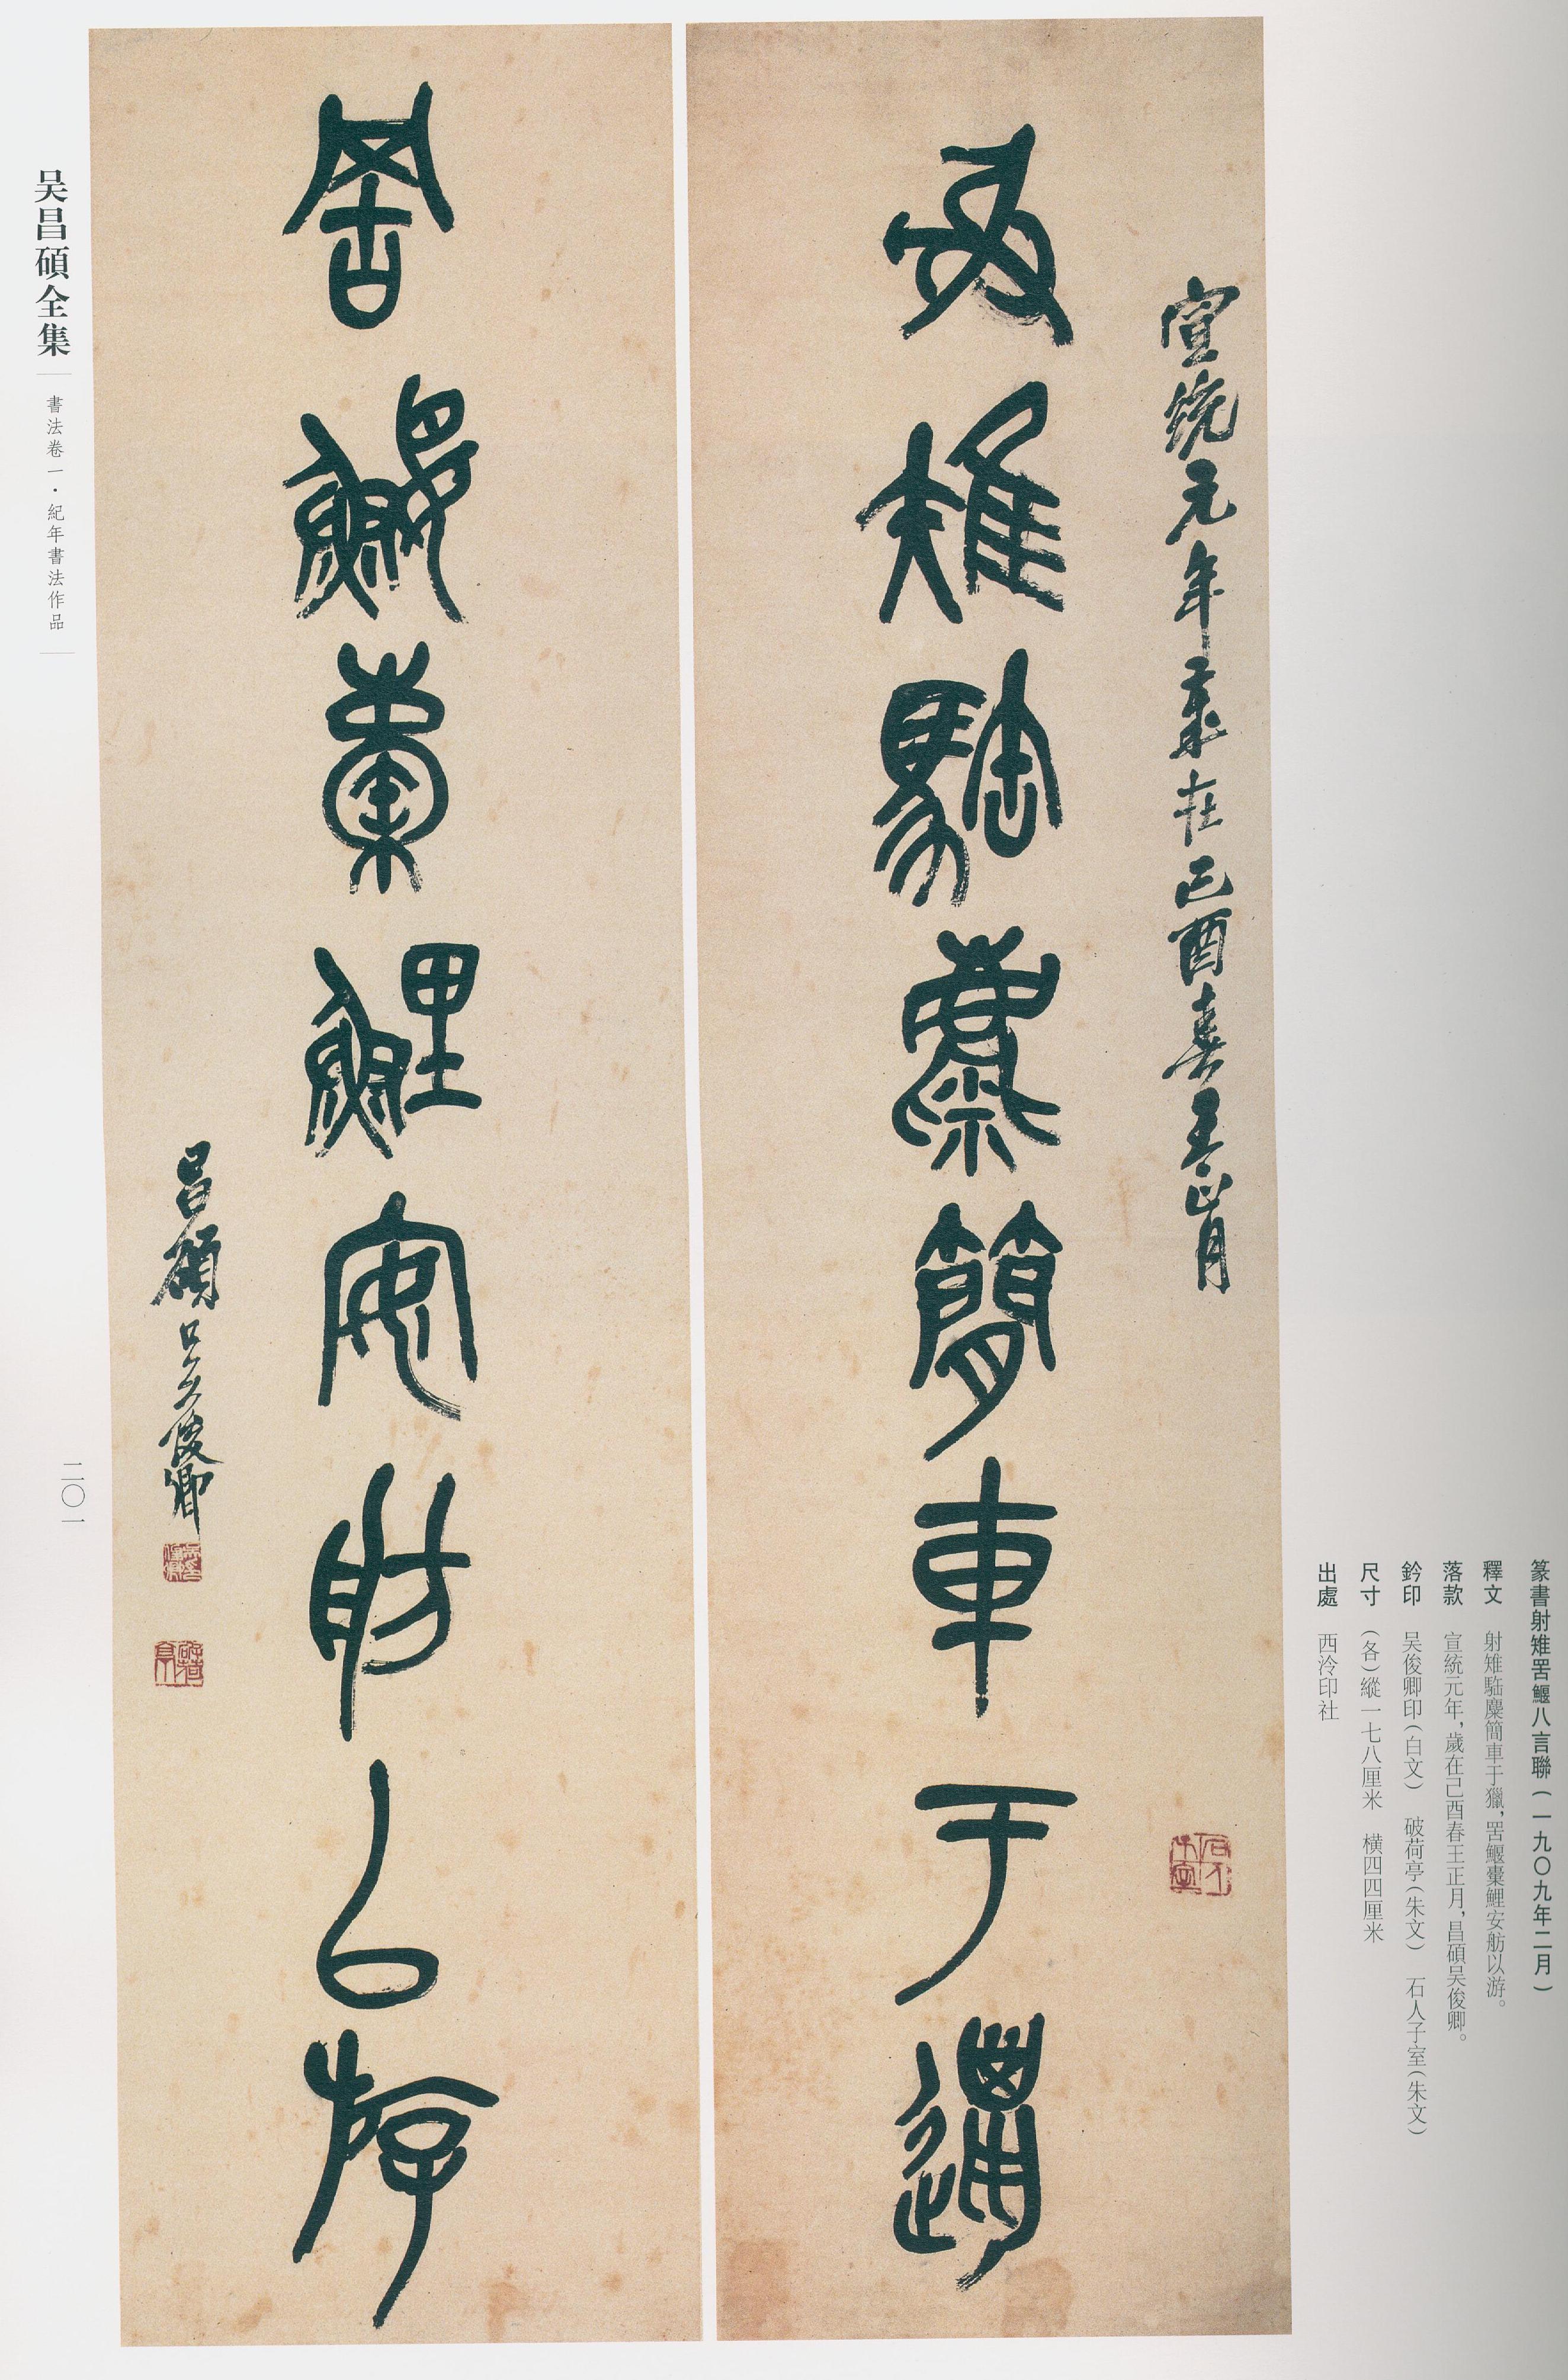 篆書射雉罟鰋八言聯（一九〇九年二月）
釋文　射雉騊麋簡車于獵，罟鰋橐鯉安舫以游。
落款　宣統元年，歲在己酉春王正月，昌碩吴俊卿。
鈐印　吴俊卿印（白文）　破荷亭（朱文）　石人子室（朱文）
尺寸　（各）縱一七八厘米　橫四四厘米
出處　西泠印社
宣統元年歲在己酉春王正月
石人子室
射雉騊麋簡車于邋
罟鰋橐鯉安舫㠯斿
昌碩吴俊卿
破荷亭
吴昌碩全集
書法卷一·紀年書法作品
二〇一